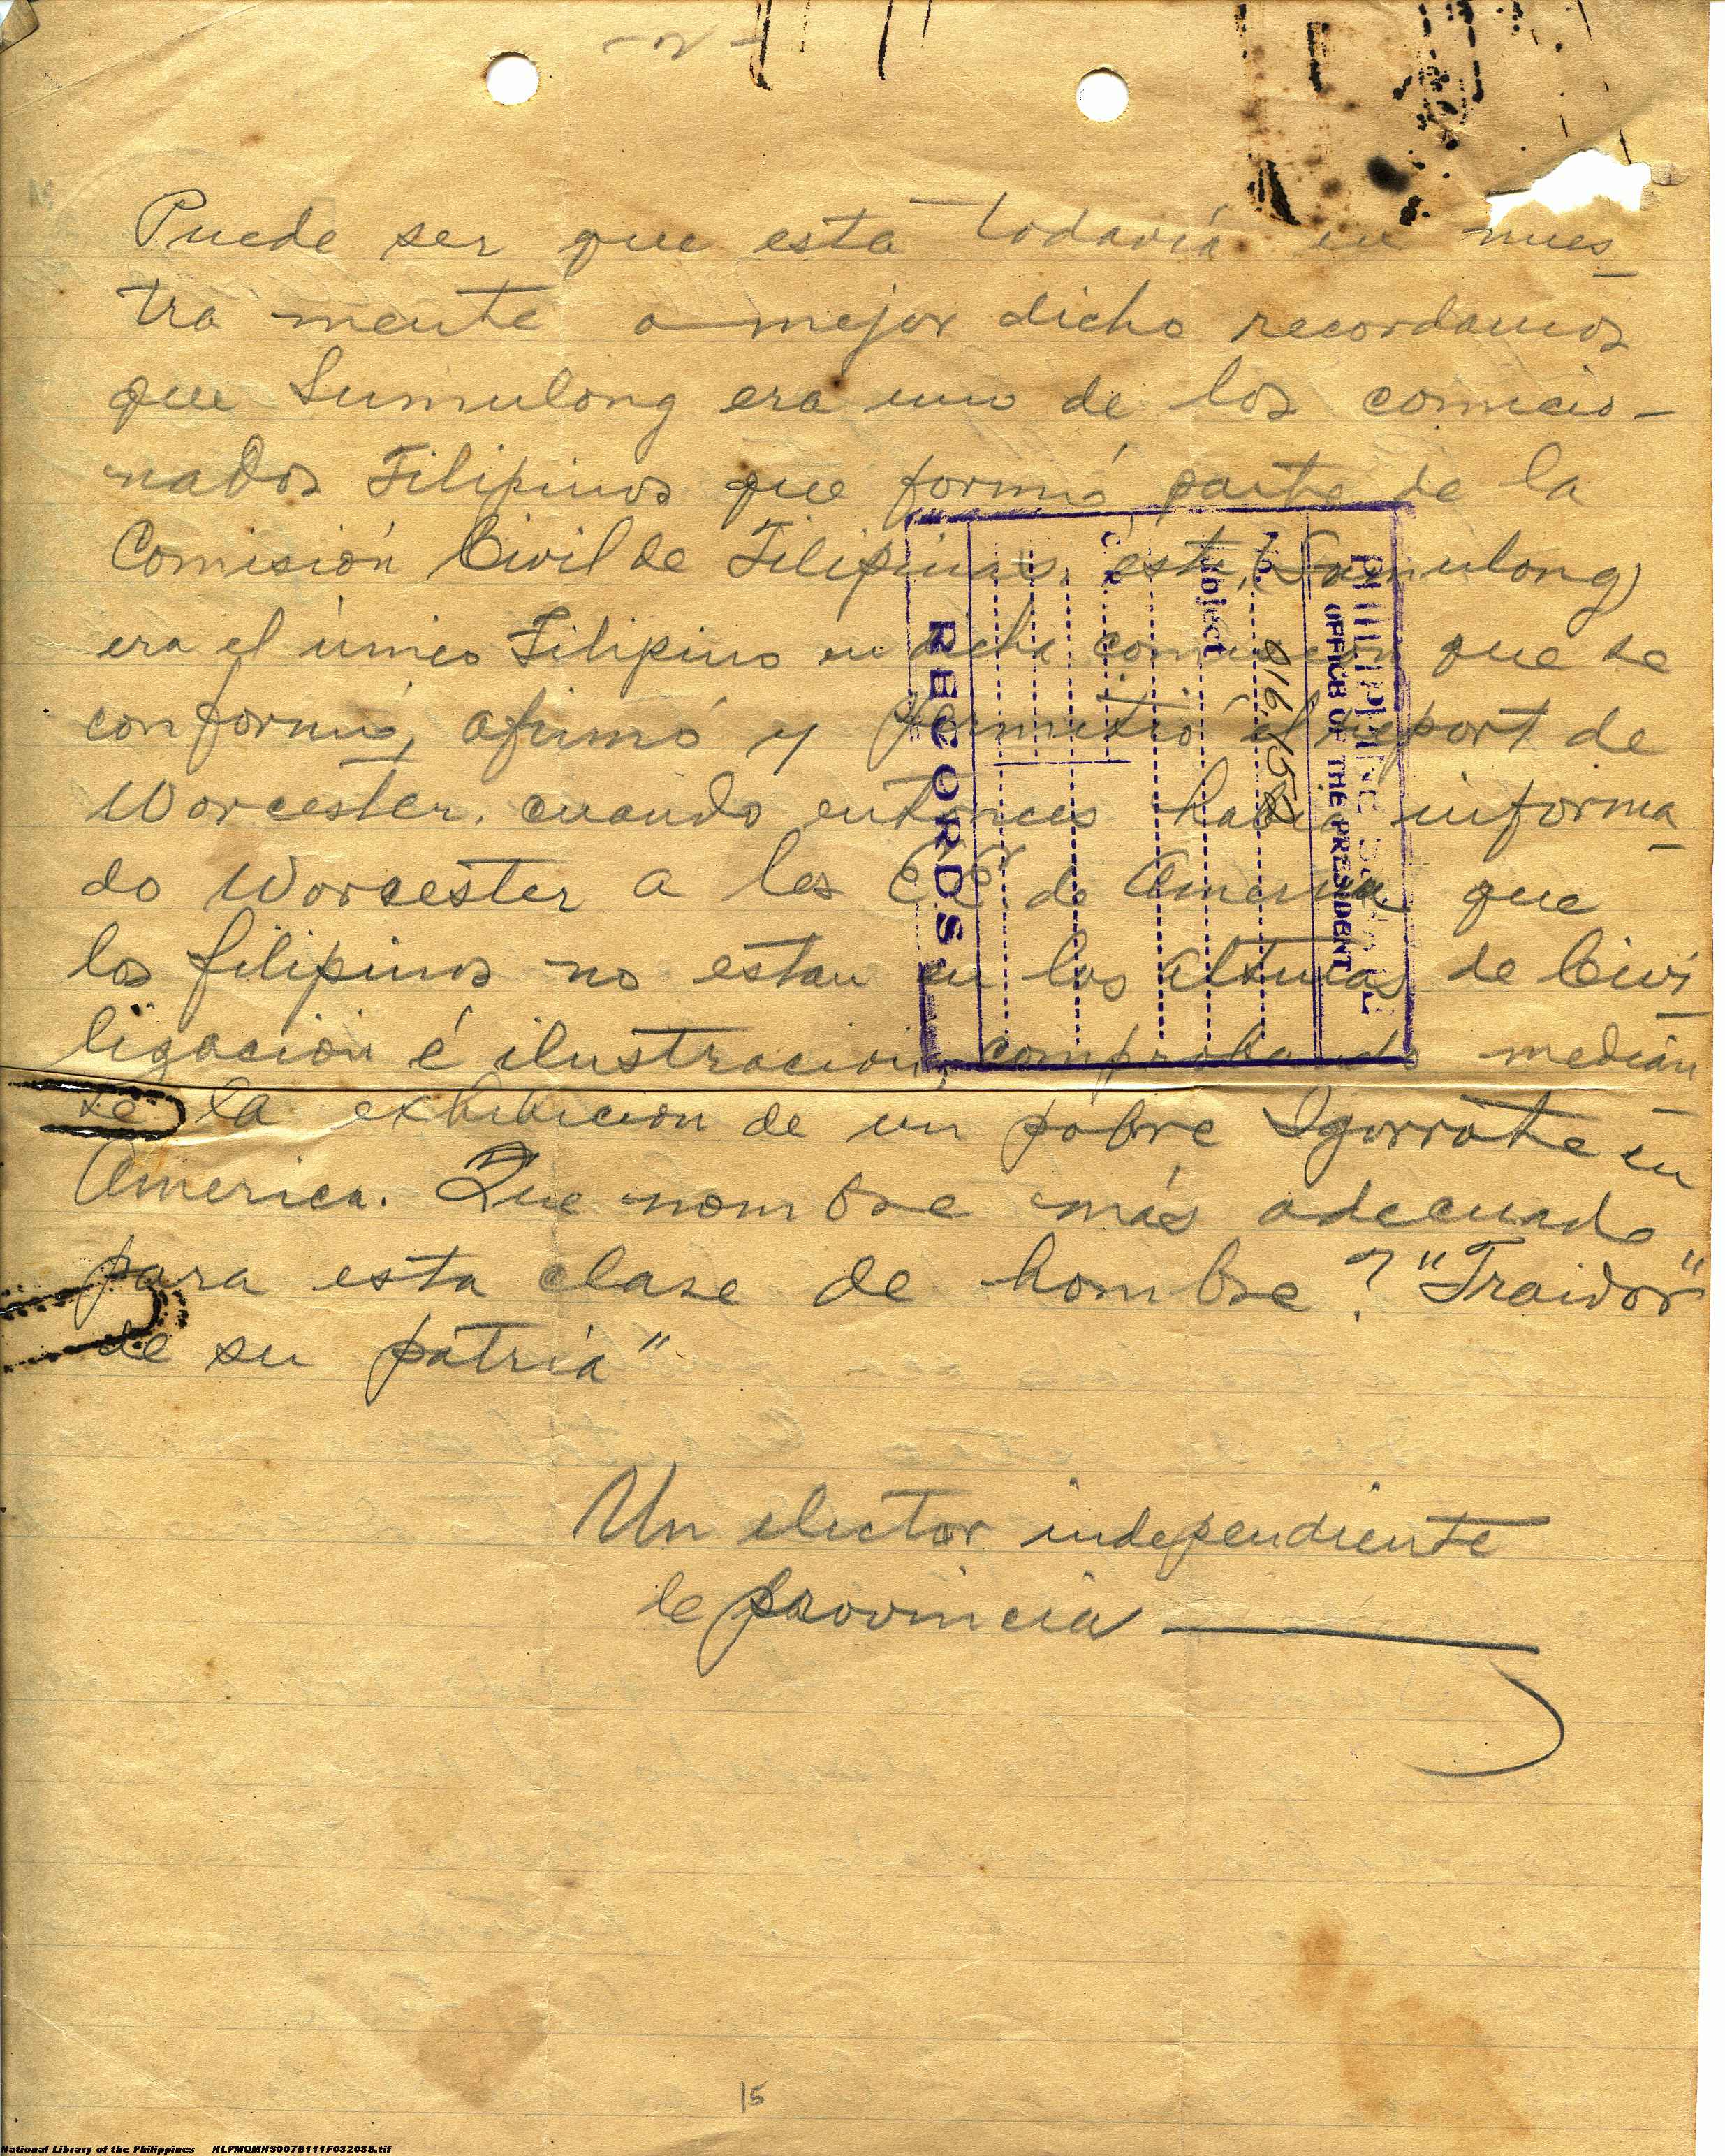 - 2 -
Puede ser que esta todavía en nues
tra mente o mejor dicho recordamos
que Sumulong era uno de los comicio-
nados Filipinos que formó parte de la
Comisión Civil de Filipinas, este (Sumulong)
era el único Filipino en dicha comisión que se
conformó, afirmó y permitió el report de
Worcester, cuando entonces había informa
do Worcester a los EE. de America que
los filipinos no estan en las alturas de Civi
ligación é ilustracion, comprobando median
te la exhibicion de un pobre Igorrote en
America. Que nombre más adecuado
para esta clase de hombre? "Traidor"
de su patria"
Un elector independiente
de provincia
PHILIPPINE
OFFICE OF THE PRESIDENT
No.
Subject
RECORDS
15
National Library of the Philippines NLPMQMNS007B111F032038.tif